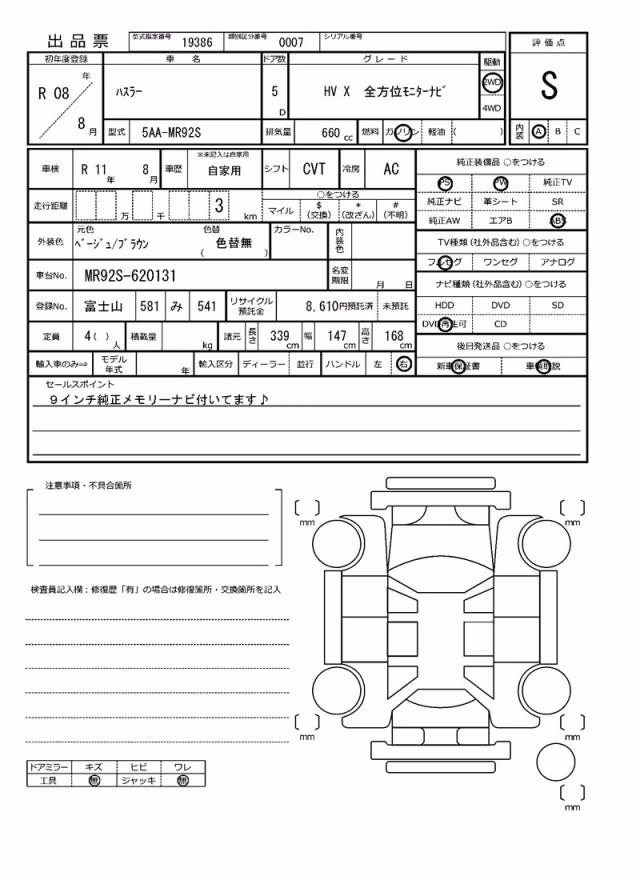 出品票 型式指定番号 19386 類別区分番号 0007 シリアル番号
評価点
S
初年度登録 車名 ドア数 グレード 駆動
R 08 年 8 月 ハスラー 5 D HV X 全方位モニターナビ 2WD 4WD
型式 5AA-MR92S 排気量 660 cc 燃料 ガソリン 軽油 ( ) 内装 A B C
車検 R 11 年 8 月 車歴 ※未記入は自家用 自家用 シフト CVT 冷房 AC
走行距離 万 千 3 km ○をつける
マイル $(交換) *(改ざん) #(不明)
外装色 元色 ベージュ/ブラウン 色替 色替無 ( ) カラーNo. 内装色
車台No. MR92S-620131 名変期限 月 日
登録No. 富士山 581 み 541 リサイクル預託金 8,610円預託済 未預託
定員 4 ( ) 人 積載量 kg 諸元 長さ 339 cm 幅 147 cm 高さ 168 cm
輸入車のみ⇒ モデル年式 年 輸入区分 ディーラー 並行 ハンドル 左 右
純正装備品 ○をつける
PS PW 純正TV
純正ナビ 革シート SR
純正AW エアB ABS
TV種類(社外品含む) ○をつける
フルセグ ワンセグ アナログ
ナビ種類(社外品含む) ○をつける
HDD DVD SD
DVD再生可 CD
後日発送品 ○をつける
新車保証書 車輌取説
セールスポイント
9インチ純正メモリーナビ付いてます♪
注意事項・不具合箇所
検査員記入欄：修復歴「有」の場合は修復箇所・交換箇所を記入
mm
mm
mm
mm
mm
ドアミラー キズ ヒビ ワレ
工具 無 ジャッキ 無